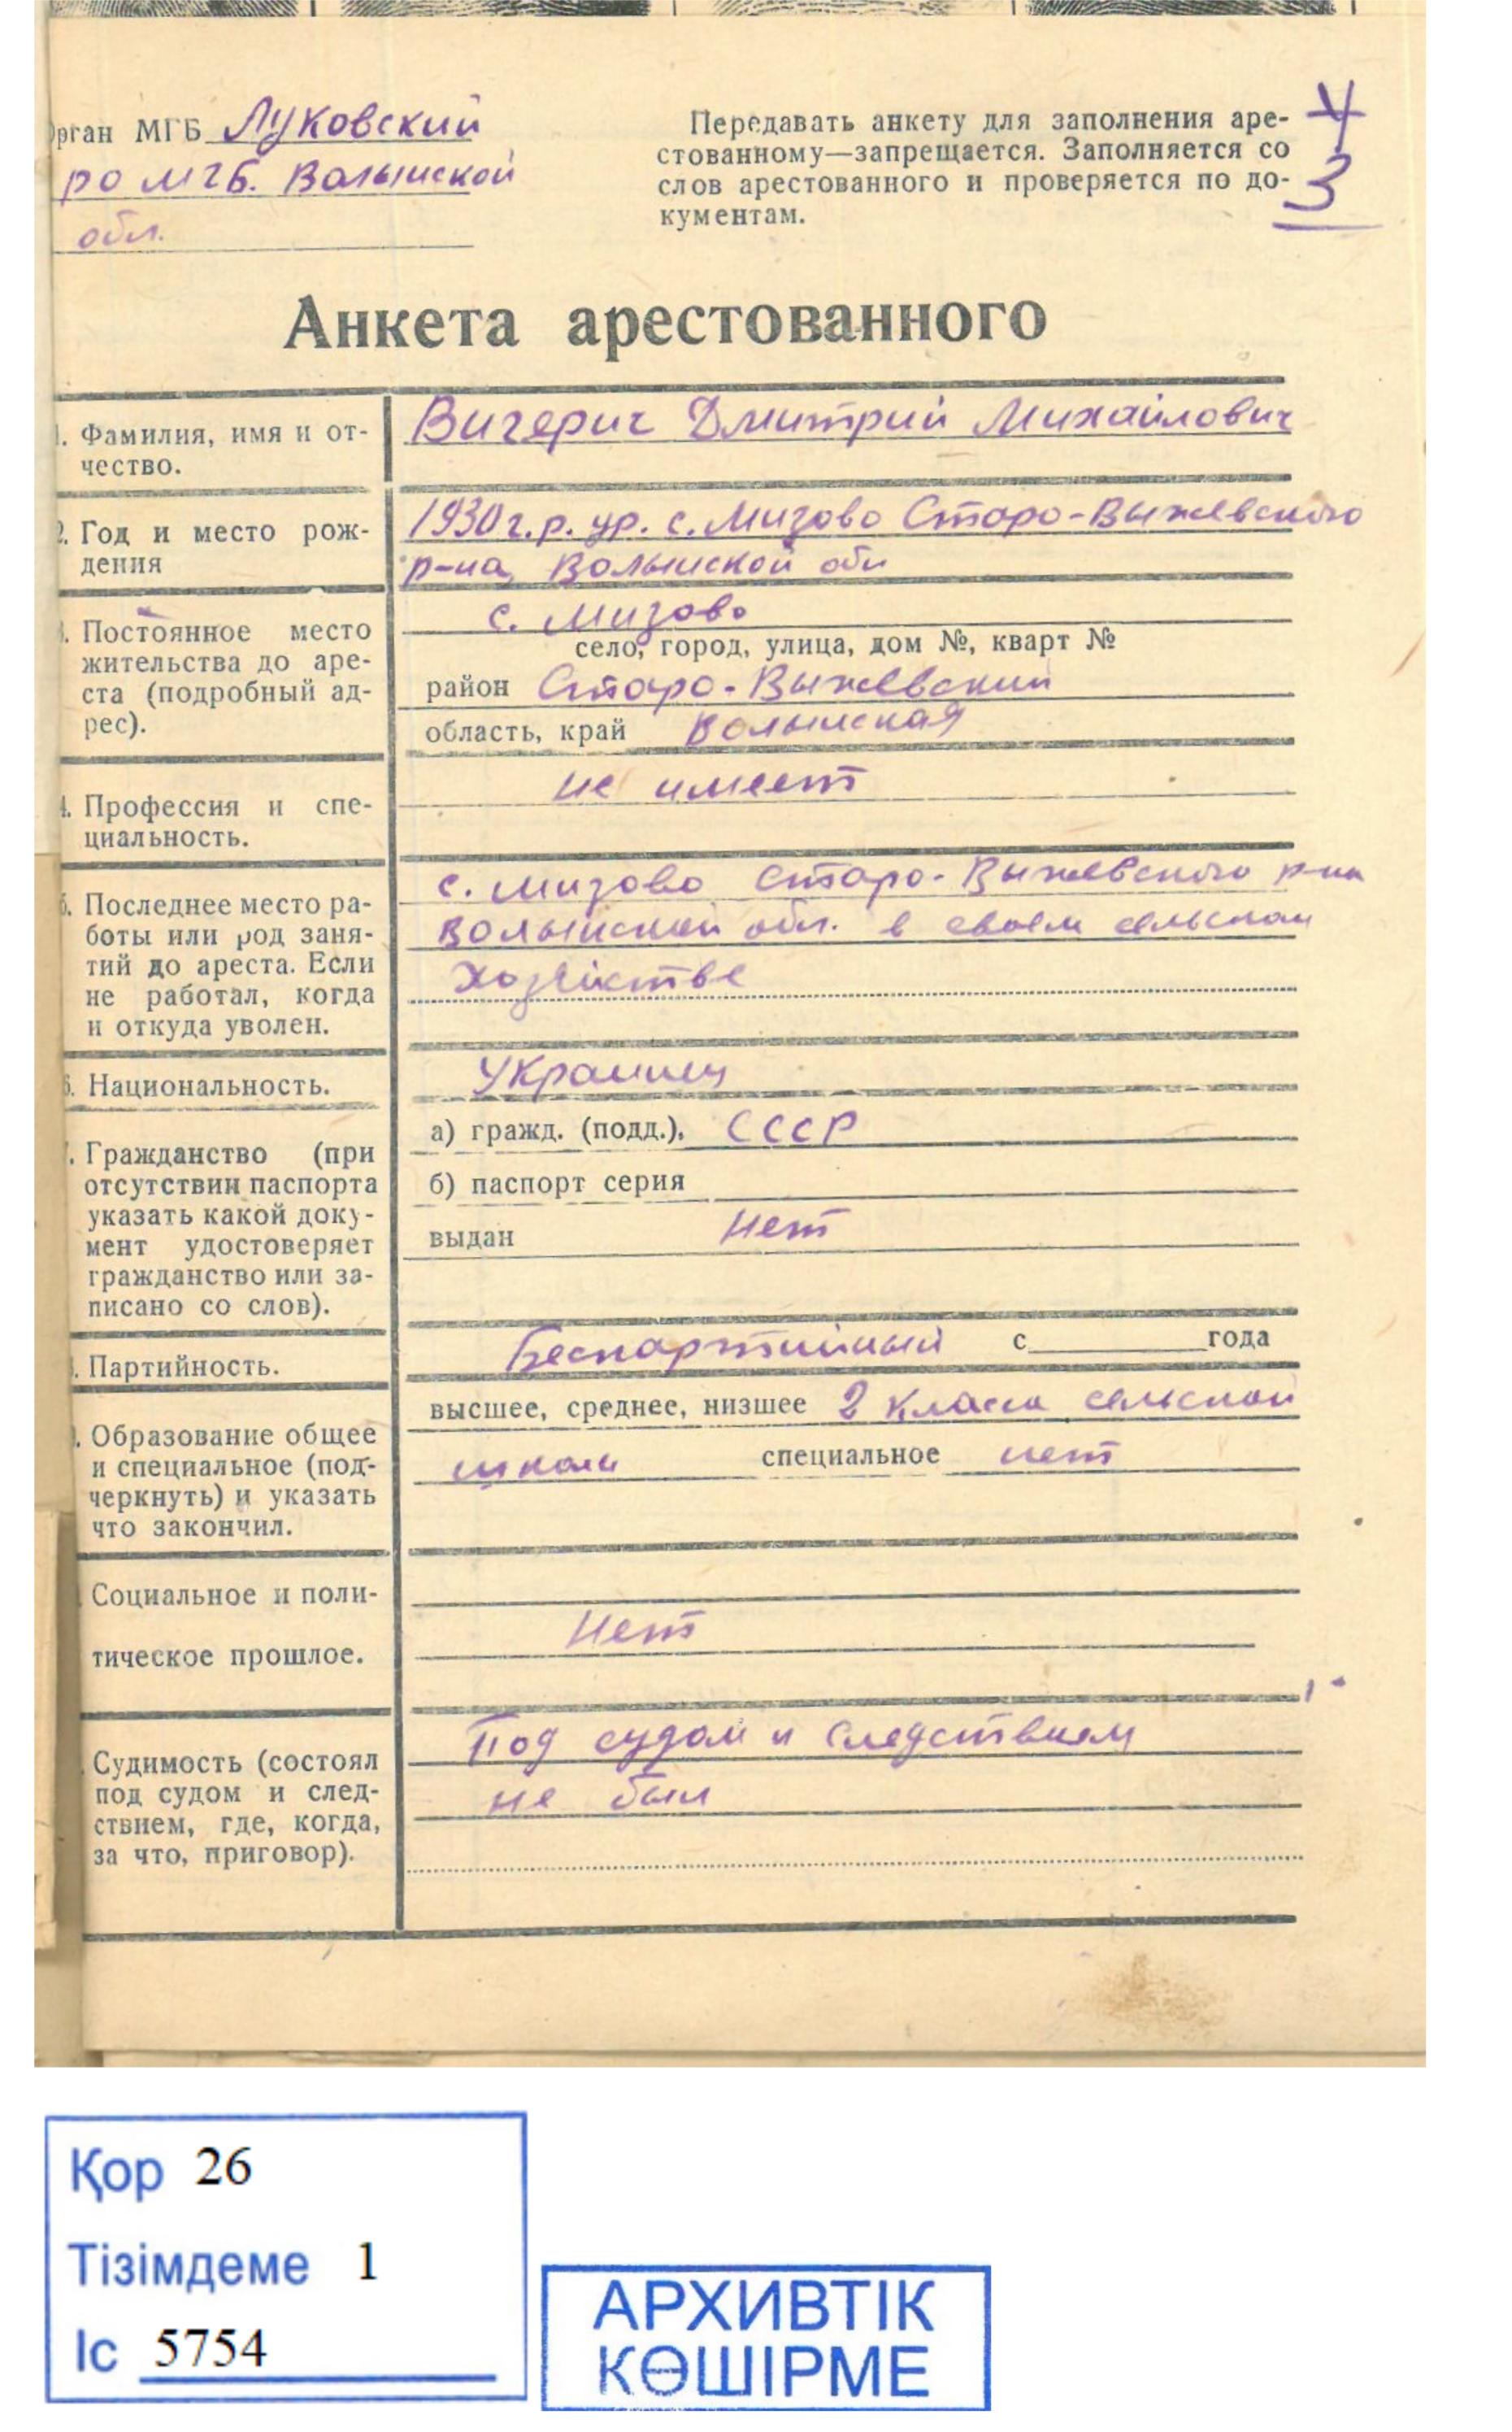 Орган МГБ Луковский
РО МГБ. Волынской
обл.
Передавать анкету для заполнения аре-
стованному—запрещается. Заполняется со
слов арестованного и проверяется по до-
кументам.
4
3
Анкета арестованного
1. Фамилия, имя и от-
чество.
Вигерич Дмитрий Михайлович
2. Год и место рож-
дения
1930 г.р. ур. с. Мизово Старо-Выжевского
р-на, Волынской обл
3. Постоянное место
жительства до аре-
ста (подробный ад-
рес).
с. Мизово
село, город, улица, дом №, кварт №
район Старо-Выжевский
область, край Волынская
4. Профессия и спе-
циальность.
не имеет
5. Последнее место ра-
боты или род заня-
тий до ареста. Если
не работал, когда
и откуда уволен.
с. Мизово Старо-Выжевского р-на
Волынской обл. в своем сельском
хозяйстве
6. Национальность.
Украинец
7. Гражданство (при
отсутствии паспорта
указать какой доку-
мент удостоверяет
гражданство или за-
писано со слов).
а) гражд. (подд.), СССР
б) паспорт серия
выдан нет
8. Партийность.
Беспартийный с года
9. Образование общее
и специальное (под-
черкнуть) и указать
что закончил.
высшее, среднее, низшее 2 класса сельской
школы специальное нет
Социальное и поли-
тическое прошлое.
Нет
Судимость (состоял
под судом и след-
ствием, где, когда,
за что, приговор).
Под судом и следствием
не был
Қор 26
Тізімдеме 1
Іс 5754
АРХИВТІК
КӨШІРМЕ